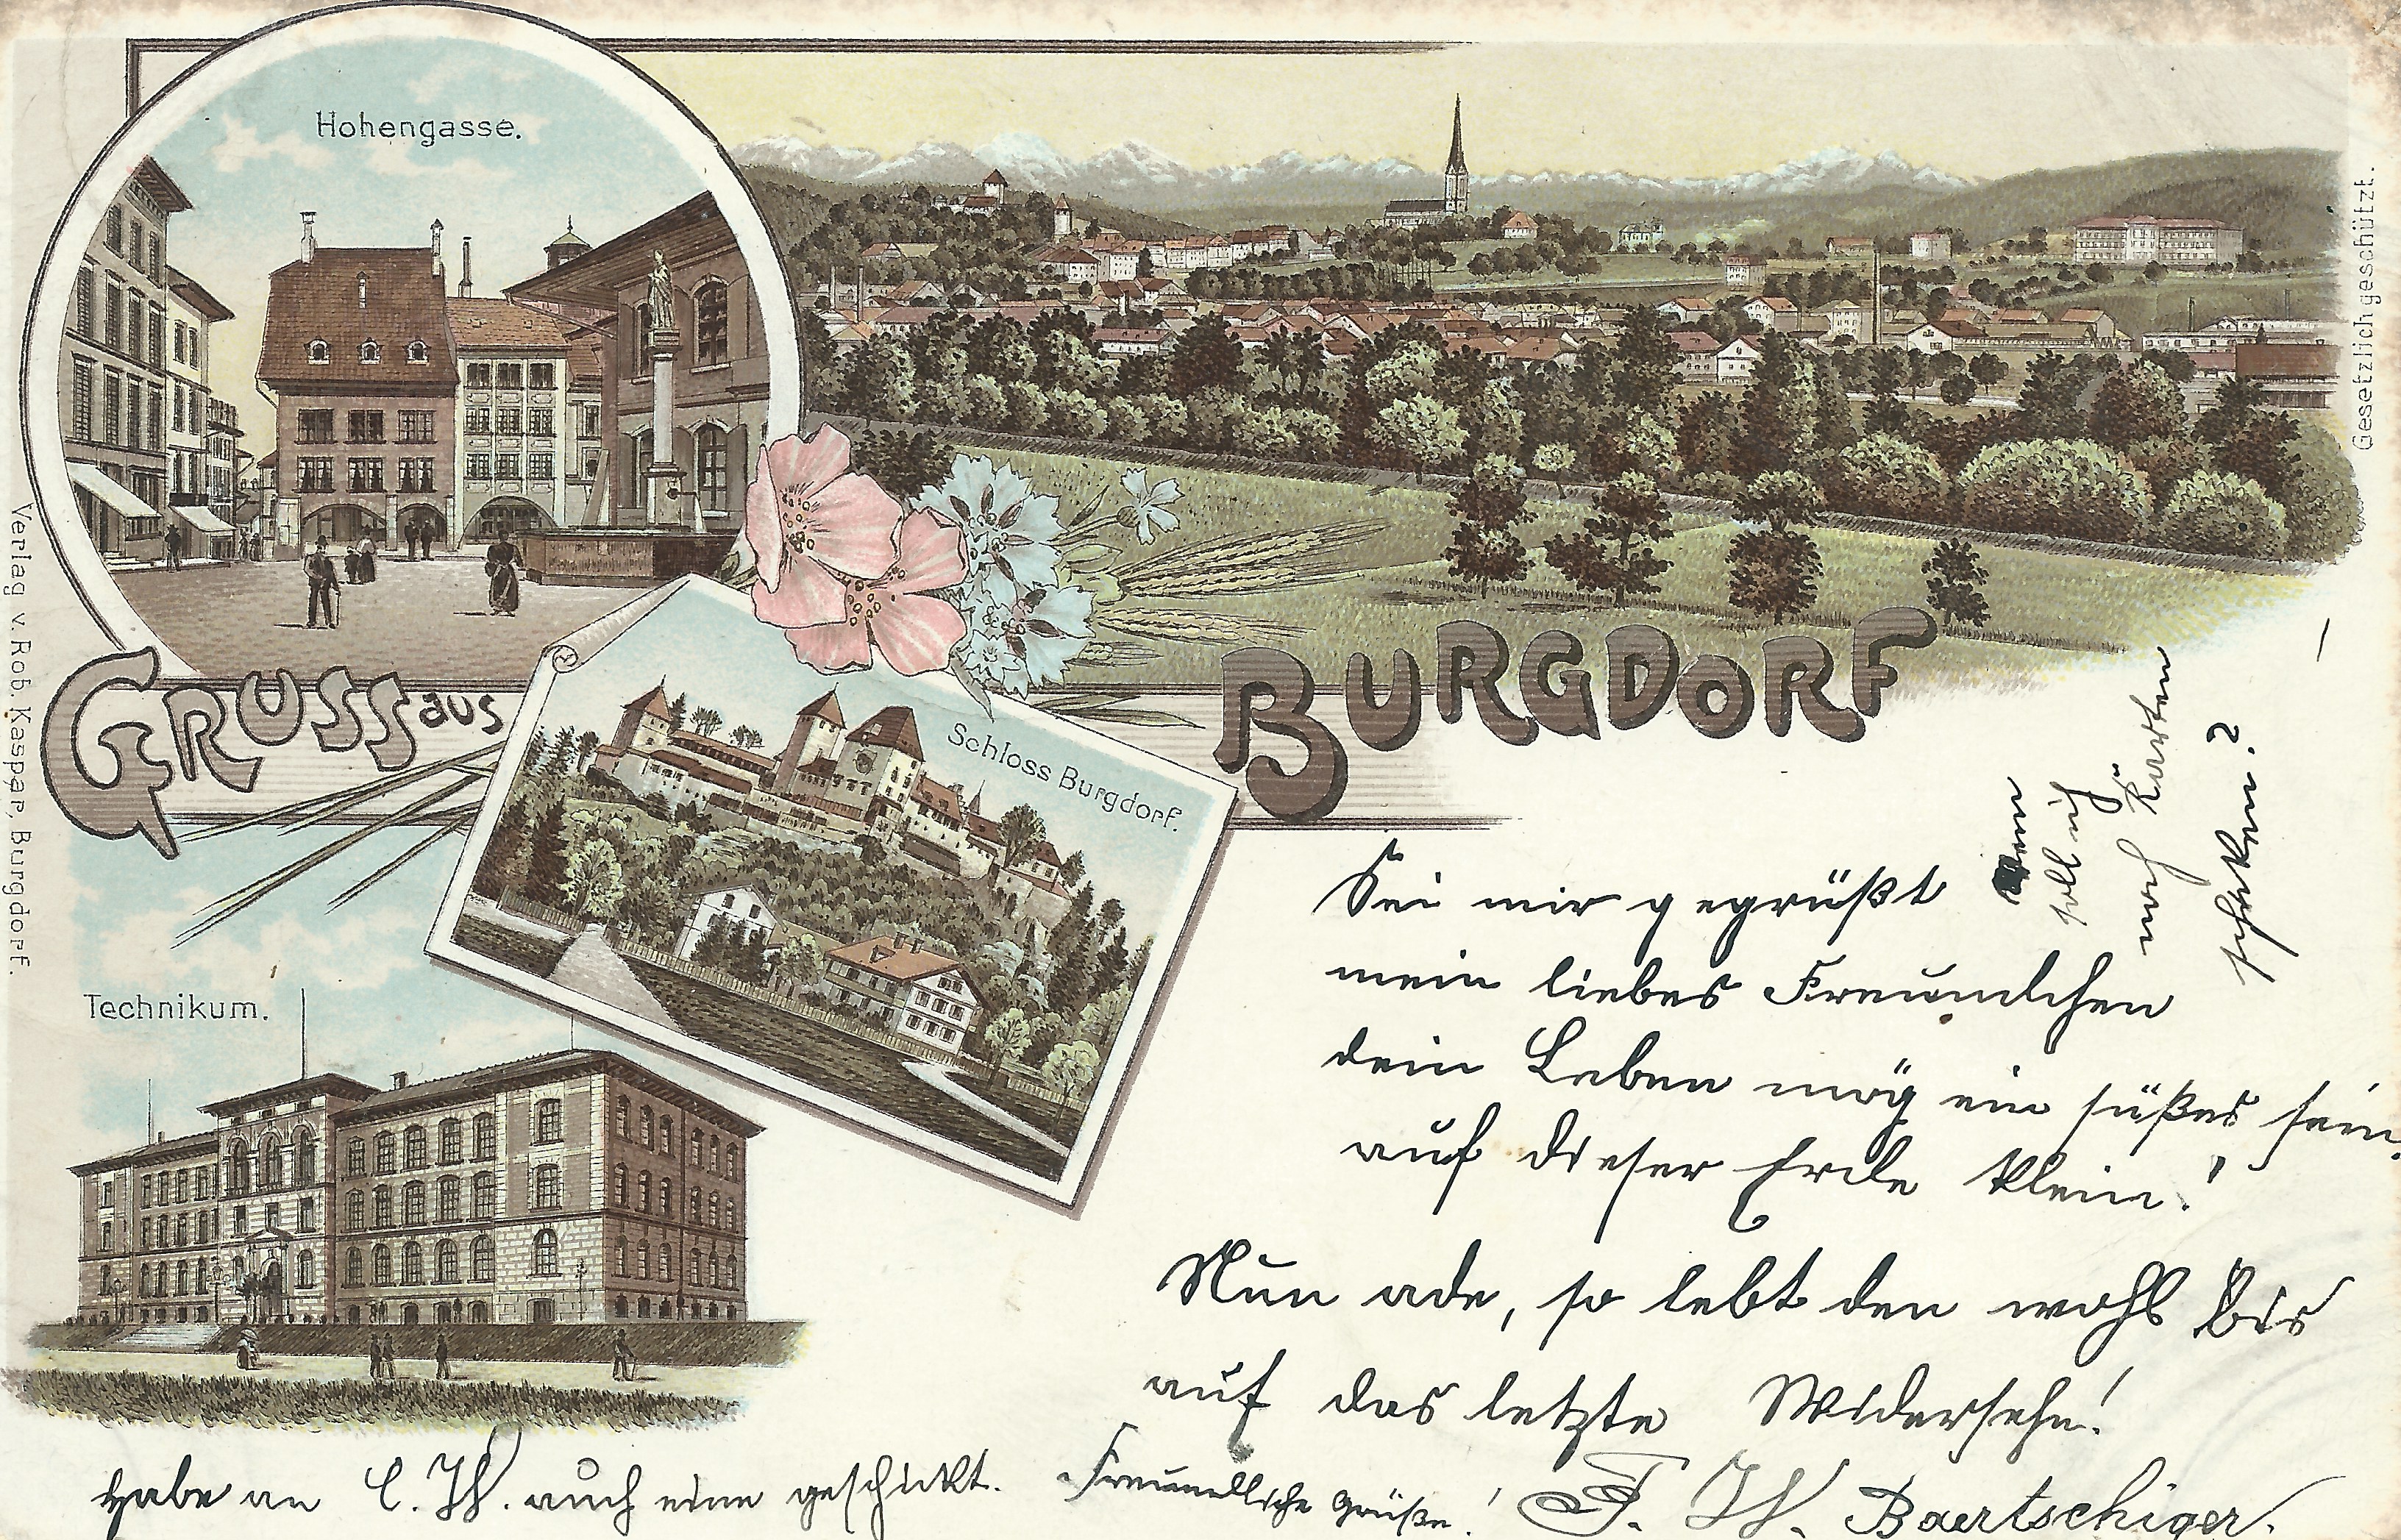 Hohengasse.
Gesetzlich geschützt.
Verlag v. Rob. Kaspar, Burgdorf.
GRUSS aus BURGDORF
Schloss Burgdorf.
Technikum.
Sei mir gegrüßt
mein liebes Freundchen
dein Leben mög ein süßes sein.
auf dieser Erde klein!
Nun ade, so lebt den wohl bis
auf das letzte Widersehn!
Freundliche Grüße! J. W. Baertschiger.
habe an C. W. auch eine geschickt.
soll ich
noch Karten
schicken?